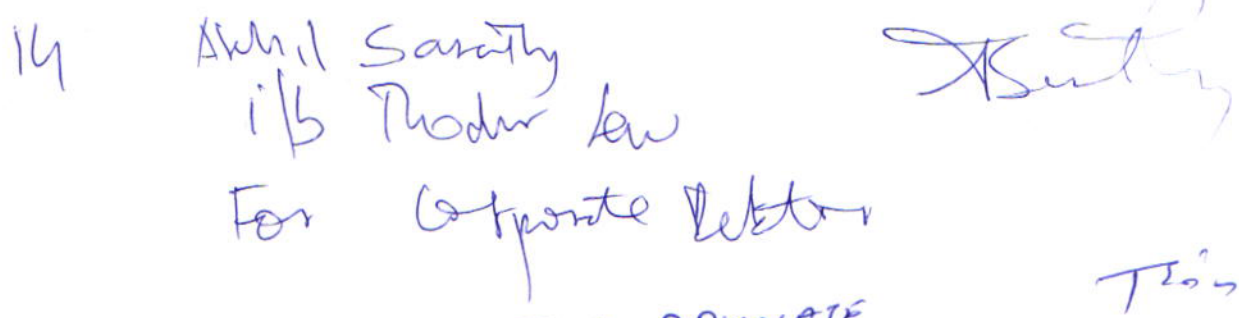 14 Akhil Sarathy
i/b Thodur Law
For Corporate Debtor